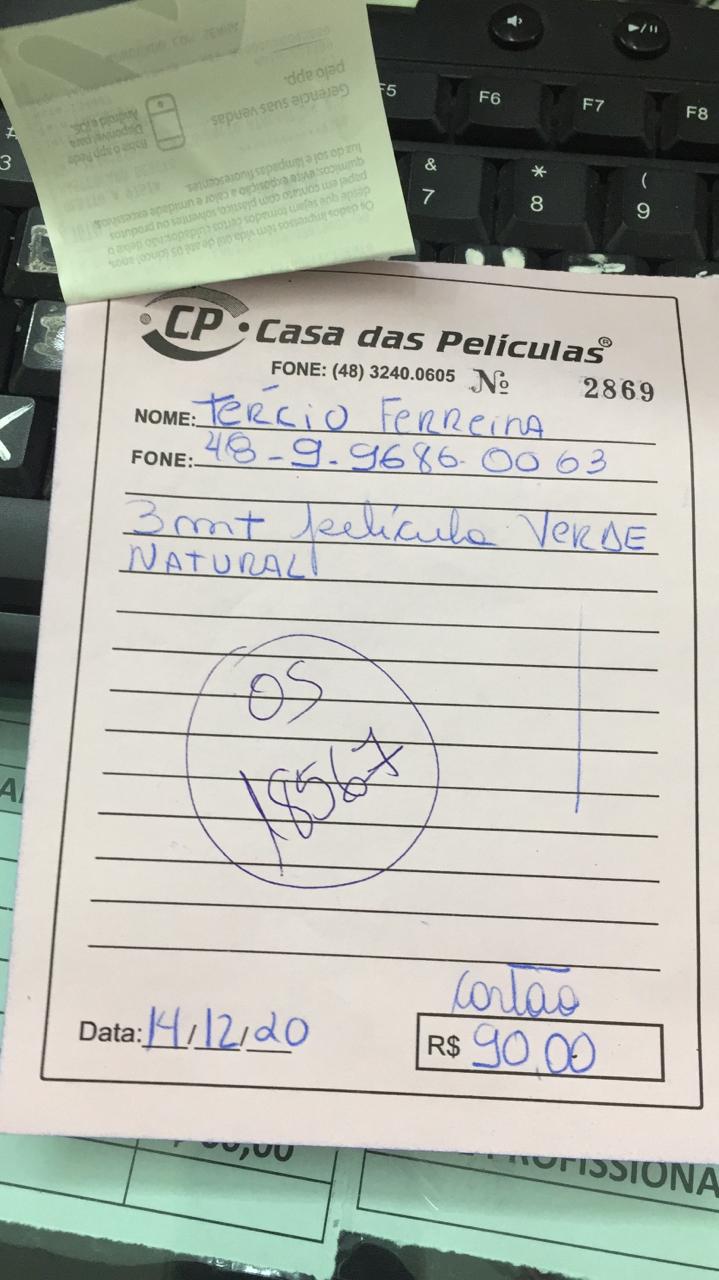 F5
F6
F7
F8
#
3
&
7
*
8
(
9
Gerencie suas vendas
pelo app.
Baixe o app Rede
Disponível para
Android e iOS.
Os dados impressos tem vida útil de até 05 (cinco) anos,
desde que sejam tomados certos cuidados: não deixe o
papel em contato com plástico, solventes ou produtos
químicos; evite exposição a calor e umidade excessiva,
luz do sol e lâmpadas fluorescentes.
CP Casa das Películas®
FONE: (48) 3240.0605 Nº 2869
NOME: Tércio Ferreira
FONE: 48-9-9686-0063
3mt película VERDE
NATURAL
OS
18567
Cartão
Data: 14/12/20 R$ 90,00
PROFISSIONA